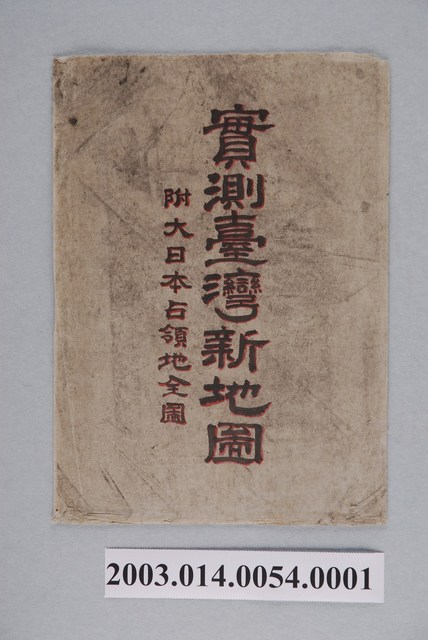 實測臺灣新地圖
附大日本占領地全圖
2003.014.0054.0001